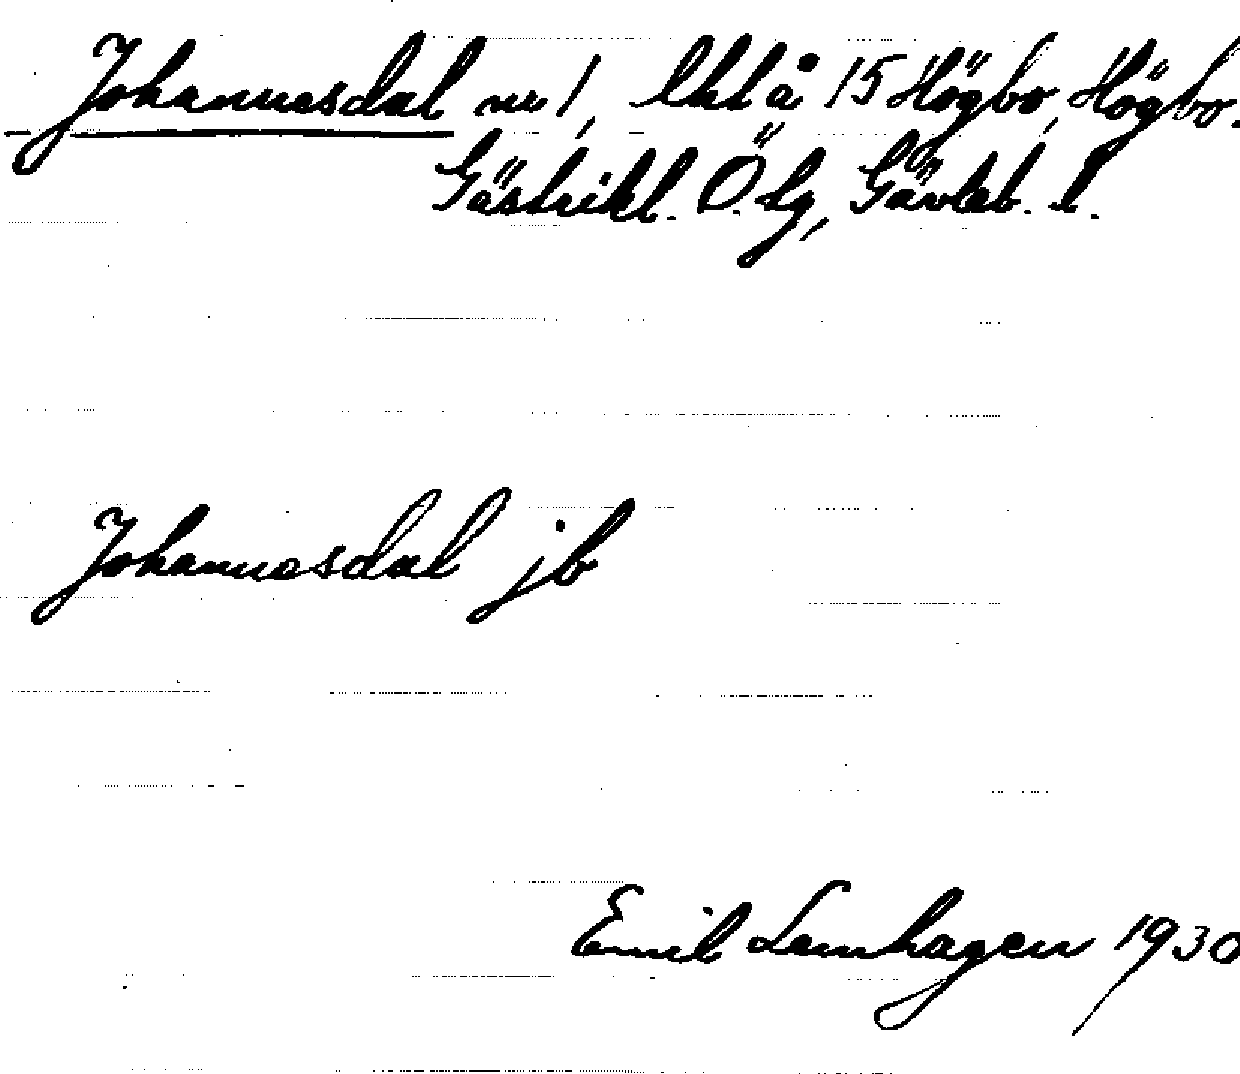 Johannesdal nr 1, lht å 15 Högbo, Högbo.
Gästrikl. Ö. tg, Gävleb. l.
Johannesdal jb
Emil Lennhagen 1930